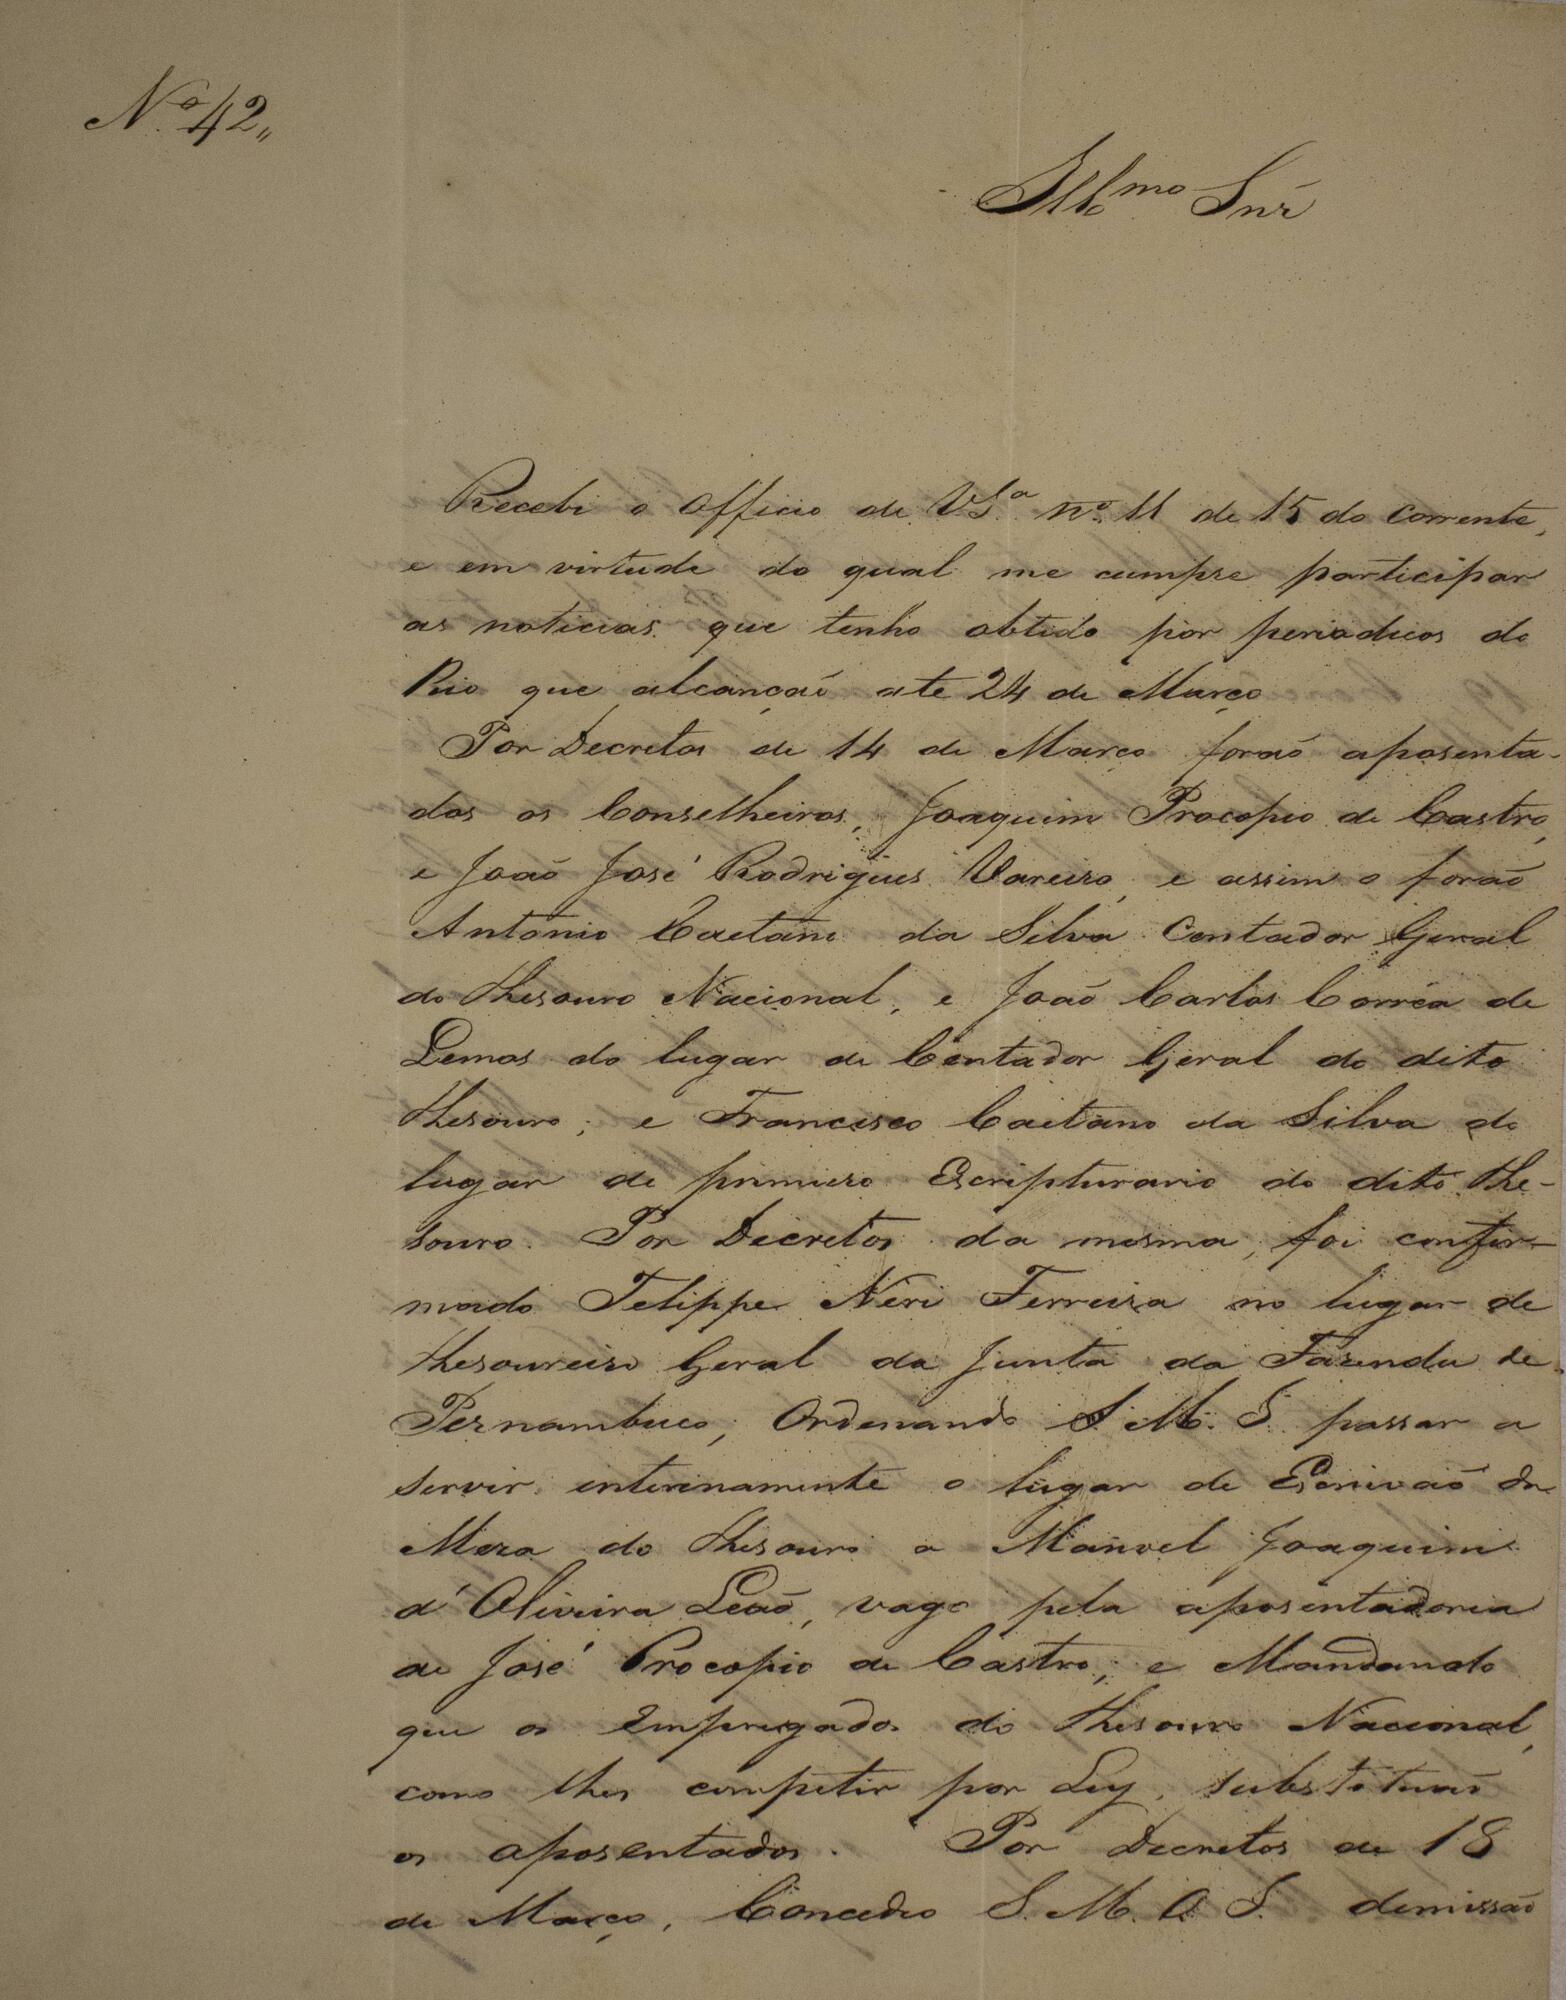 Nº 42,,
Illmo Snr
Recebi o Officio de VSª nº 11 de 15 do corrente,
e em virtude do qual me cumpre participar
as noticias que tenho obtido por periodicos do
Rio que alcançaõ até 24 de Março
Por Decretos de 14 de Março foraõ aposenta-
dos os Conselheiros, Joaquim Procopio de Castro,
e Joaõ José Rodrigues Vareiro, e assim o foraõ
Antonio Caetano da Silva Contador Geral
do Thesouro Nacional, e Joaõ Carlos Corrêa de
Lemos do lugar de Contador Geral do dito
Thesouro; e Francisco Caetano da Silva do
lugar de primeiro Escripturario do dito The-
souro. Por Decretos da mesma, foi confir-
mado Felippe Neri Ferreira no lugar de
Thesoureiro Geral da Junta da Fazenda de
Pernambuco, Ordenando S. M. I. passar a
servir interinamente o lugar de Escrivaõ da
Meza do Thesouro a Manoel Joaquim
d'Oliveira Leaõ, vago pela aposentadoria
de José Procopio de Castro; e Mandando
que os Empregados do Thesouro Nacional,
como lhes competir por Ley, substituaõ
os aposentados. Por Decretos de 18
de Março, Concedeo S. M. O I. demissaõ